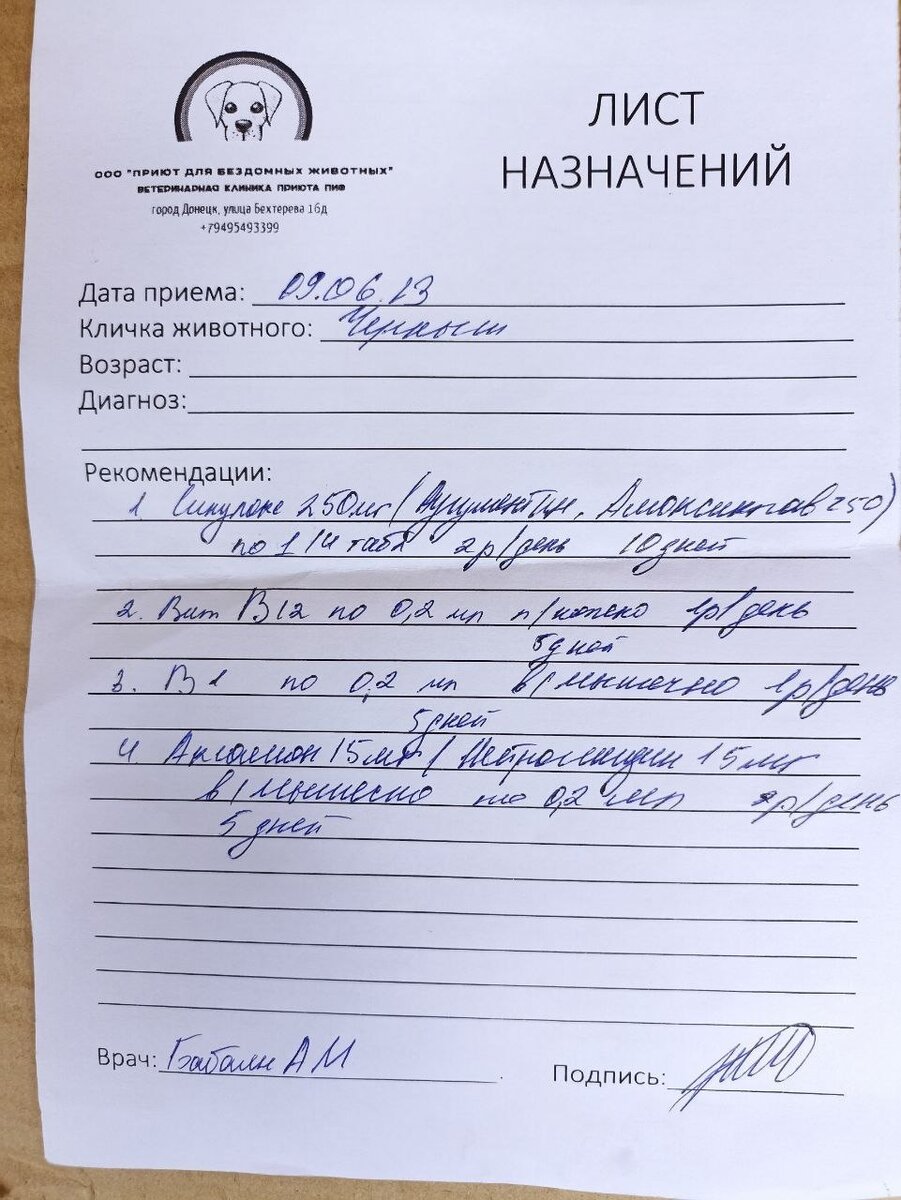 ООО "ПРИЮТ ДЛЯ БЕЗДОМНЫХ ЖИВОТНЫХ"
ВЕТЕРИНАРНАЯ КЛИНИКА ПРИЮТА ПИФ
город Донецк, улица Бехтерева 16д
+79495493399
ЛИСТ
НАЗНАЧЕНИЙ
Дата приема: 09.06.23
Кличка животного: Черныш
Возраст:
Диагноз:
Рекомендации:
1. Синулокс 250мг (Аугментин, Амоксиклав 250)
по 1/4 табл 2р/день 10 дней
2. Вит В12 по 0,2 мл п/кожно 1р/день
5 дней
3. В1 по 0,2 мл в/мышечно 1р/день
5 дней
4 Аксамон 15мг / 15мг
в/мышечно по 0,2 мл р/день
5 дней
Врач: А М
Подпись: